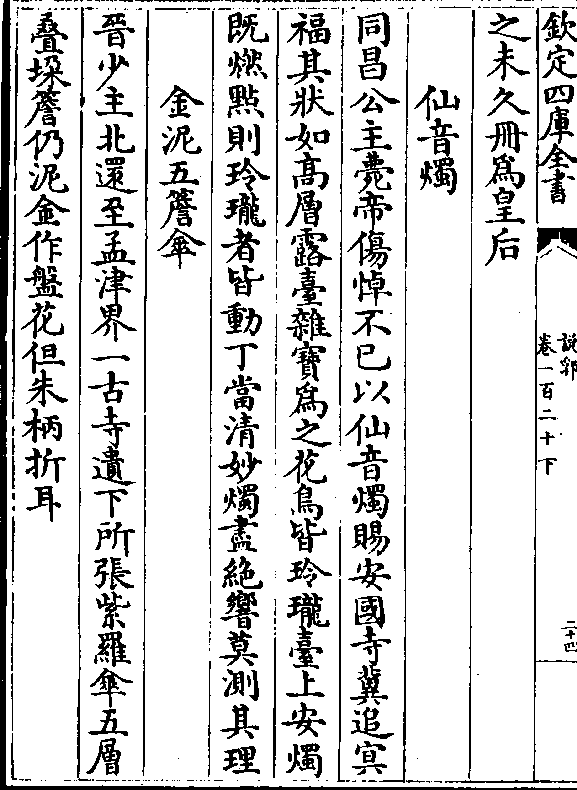 欽定四庫全書
說郛
卷一百二十下
二十四
之未久冊為皇后
仙音燭
同昌公主薨帝傷悼不已以仙音燭賜安國寺冀追冥
福其狀如高層露臺雜寶為之花鳥皆玲瓏臺上安燭
既燃點則玲瓏者皆動丁當清妙燭盡絶響莫測其理
金泥五簷傘
晉少主北還至孟津界一古寺遺下所張紫羅傘五層
疊垜簷仍泥金作盤花但朱柄折耳